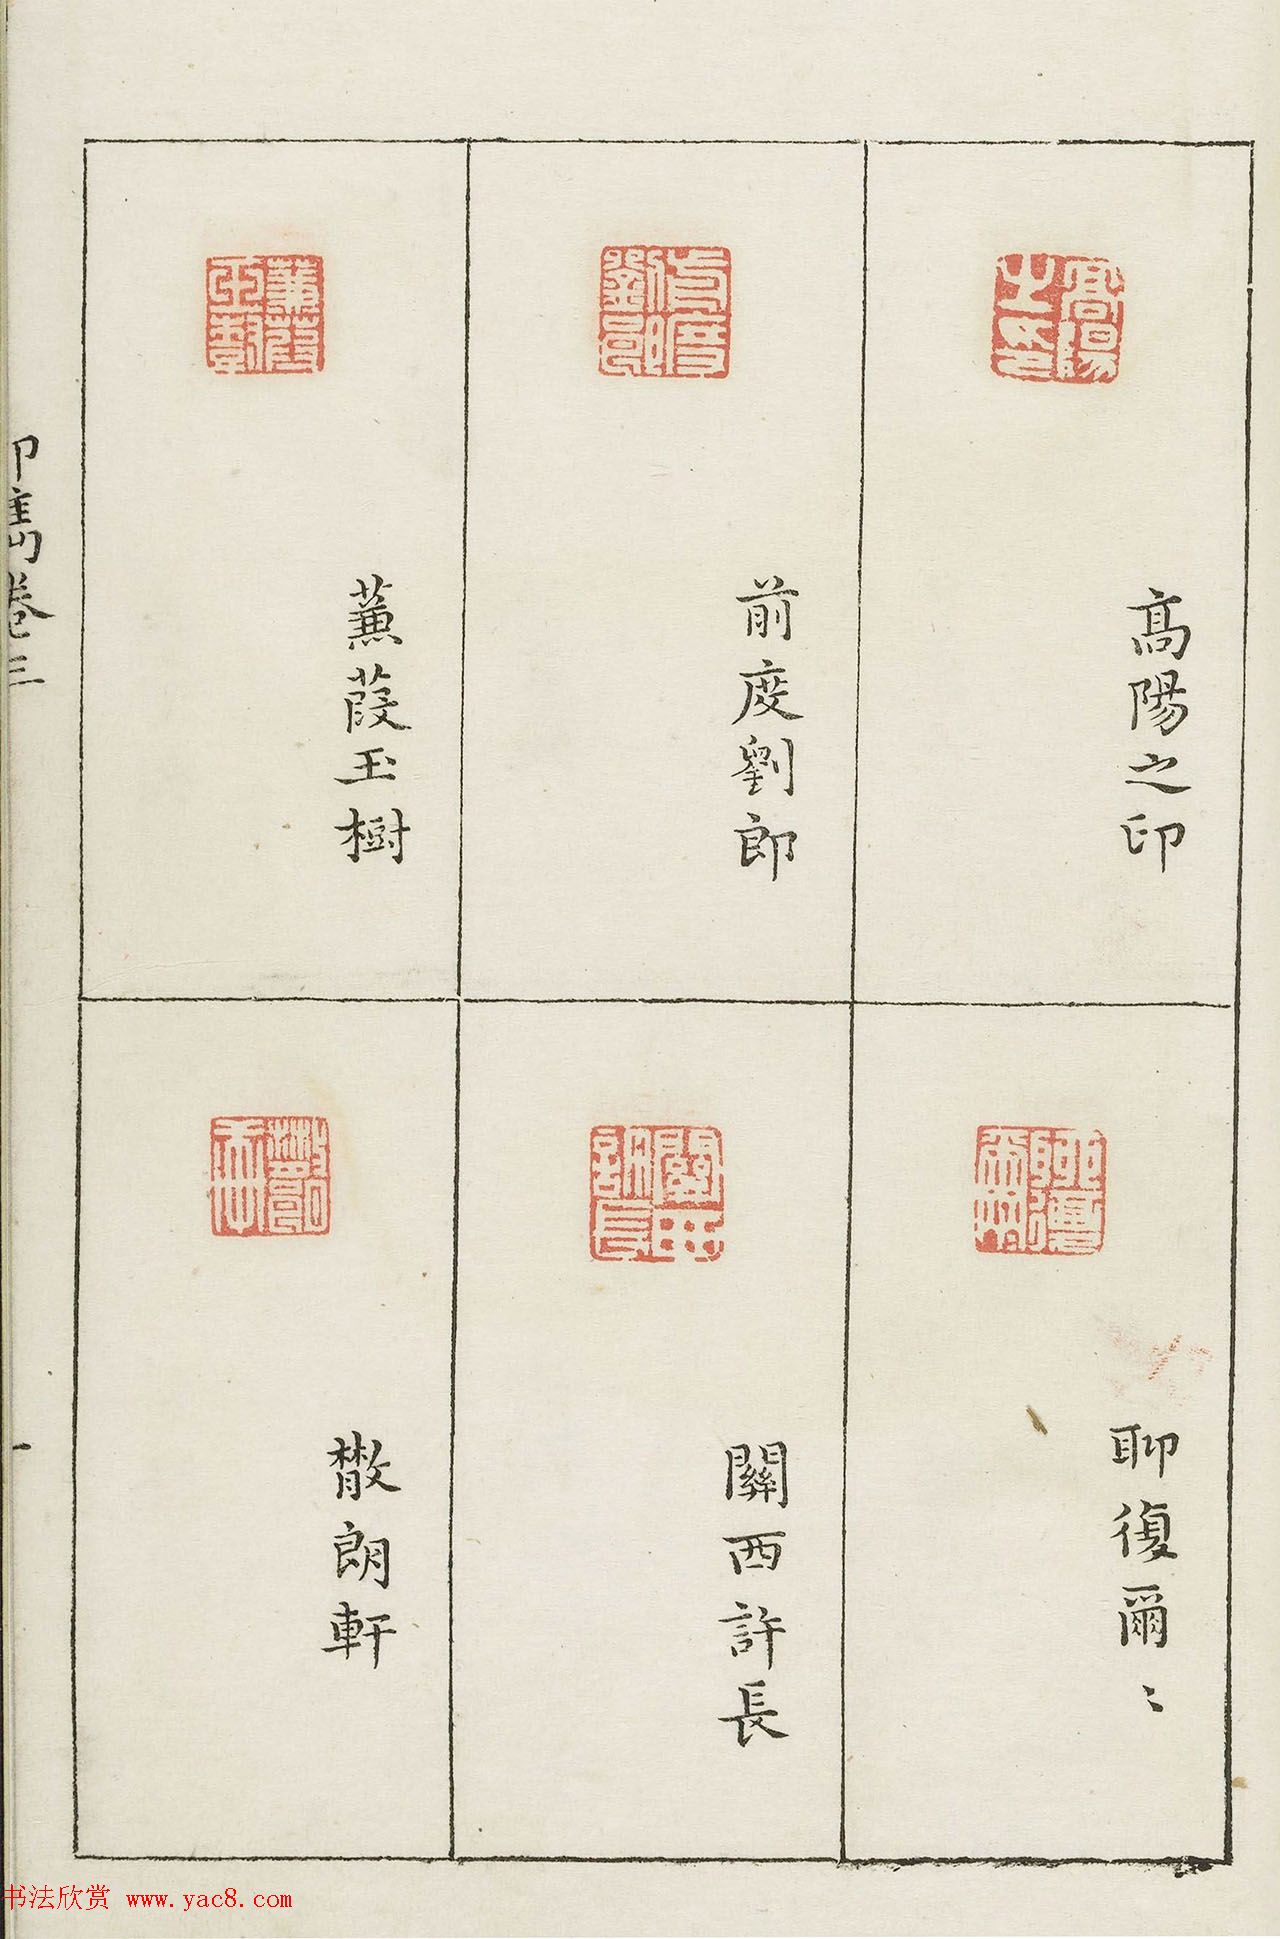 高陽之印
前度劉郎
蒹葭玉樹
聊復爾〻
關西許長
散朗軒
印雋卷三
一
书法欣赏 www.yac8.com